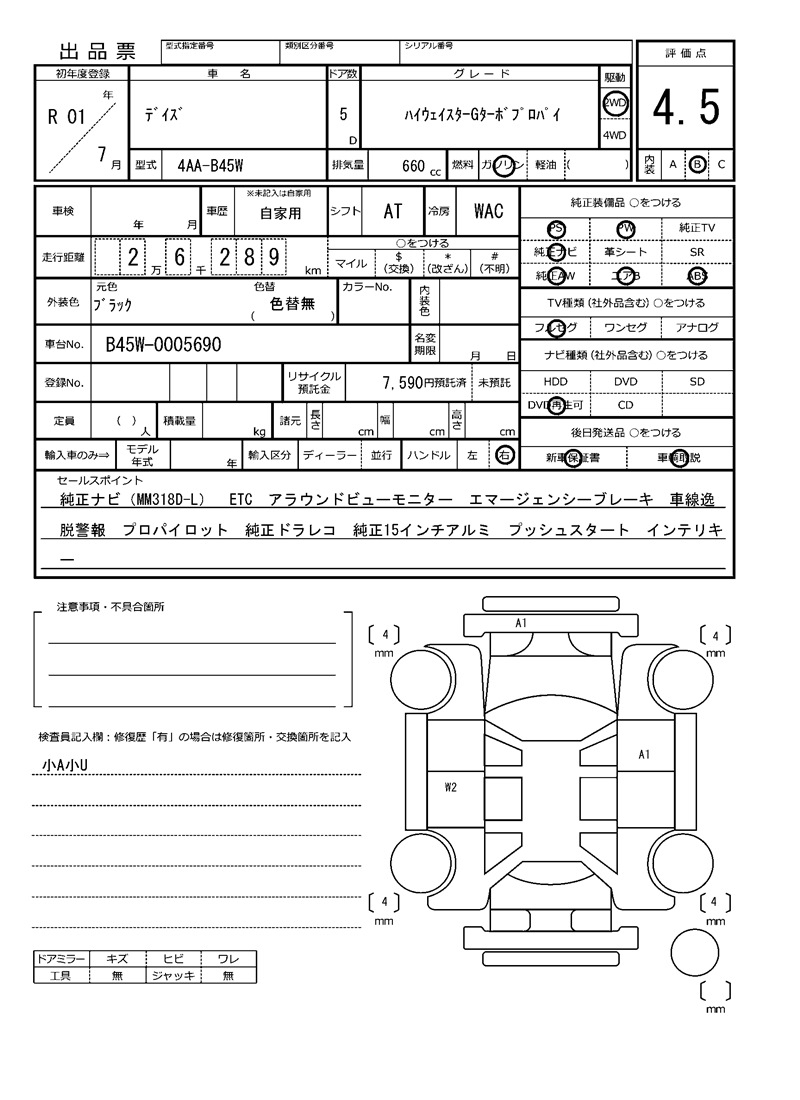 出品票
型式指定番号 類別区分番号 シリアル番号
評価点
4.5
内装 A B C
初年度登録 車名 ドア数 グレード 駆動
R 01 年 7 月
ﾃﾞｲｽﾞ
5 D
ﾊｲｳｪｲｽﾀｰGﾀｰﾎﾞﾌﾟﾛﾊﾟｲ
2WD
4WD
型式 4AA-B45W 排気量 660 cc 燃料 ガソリン 軽油 ( )
車検 年 月 車歴 ※未記入は自家用 自家用 シフト AT 冷房 WAC
走行距離 2万6千289 km
○をつける
マイル $(交換) *(改ざん) #(不明)
外装色 元色 ﾌﾞﾗｯｸ 色替 色替無 ( ) カラーNo. 内装色
車台No. B45W-0005690 名変期限 月 日
登録No. リサイクル預託金 7,590円預託済 未預託
定員 ( ) 人 積載量 kg 諸元 長さ cm 幅 cm 高さ cm
輸入車のみ⇒ モデル年式 年 輸入区分 ディーラー 並行 ハンドル 左 右
純正装備品 ○をつける
PS PW 純正TV
純正ナビ 革シート SR
純正AW エアB ABS
TV種類(社外品含む)○をつける
フルセグ ワンセグ アナログ
ナビ種類(社外品含む)○をつける
HDD DVD SD
DVD再生可 CD
後日発送品 ○をつける
新車保証書 車輌取説
セールスポイント
純正ナビ(MM318D-L) ETC アラウンドビューモニター エマージェンシーブレーキ 車線逸
脱警報 プロパイロット 純正ドラレコ 純正15インチアルミ プッシュスタート インテリキ
ー
注意事項・不具合箇所
検査員記入欄：修復歴「有」の場合は修復箇所・交換箇所を記入
小A小U
ドアミラー キズ ヒビ ワレ
工具 無 ジャッキ 無
A1
4 mm
4 mm
A1
W2
4 mm
4 mm
mm